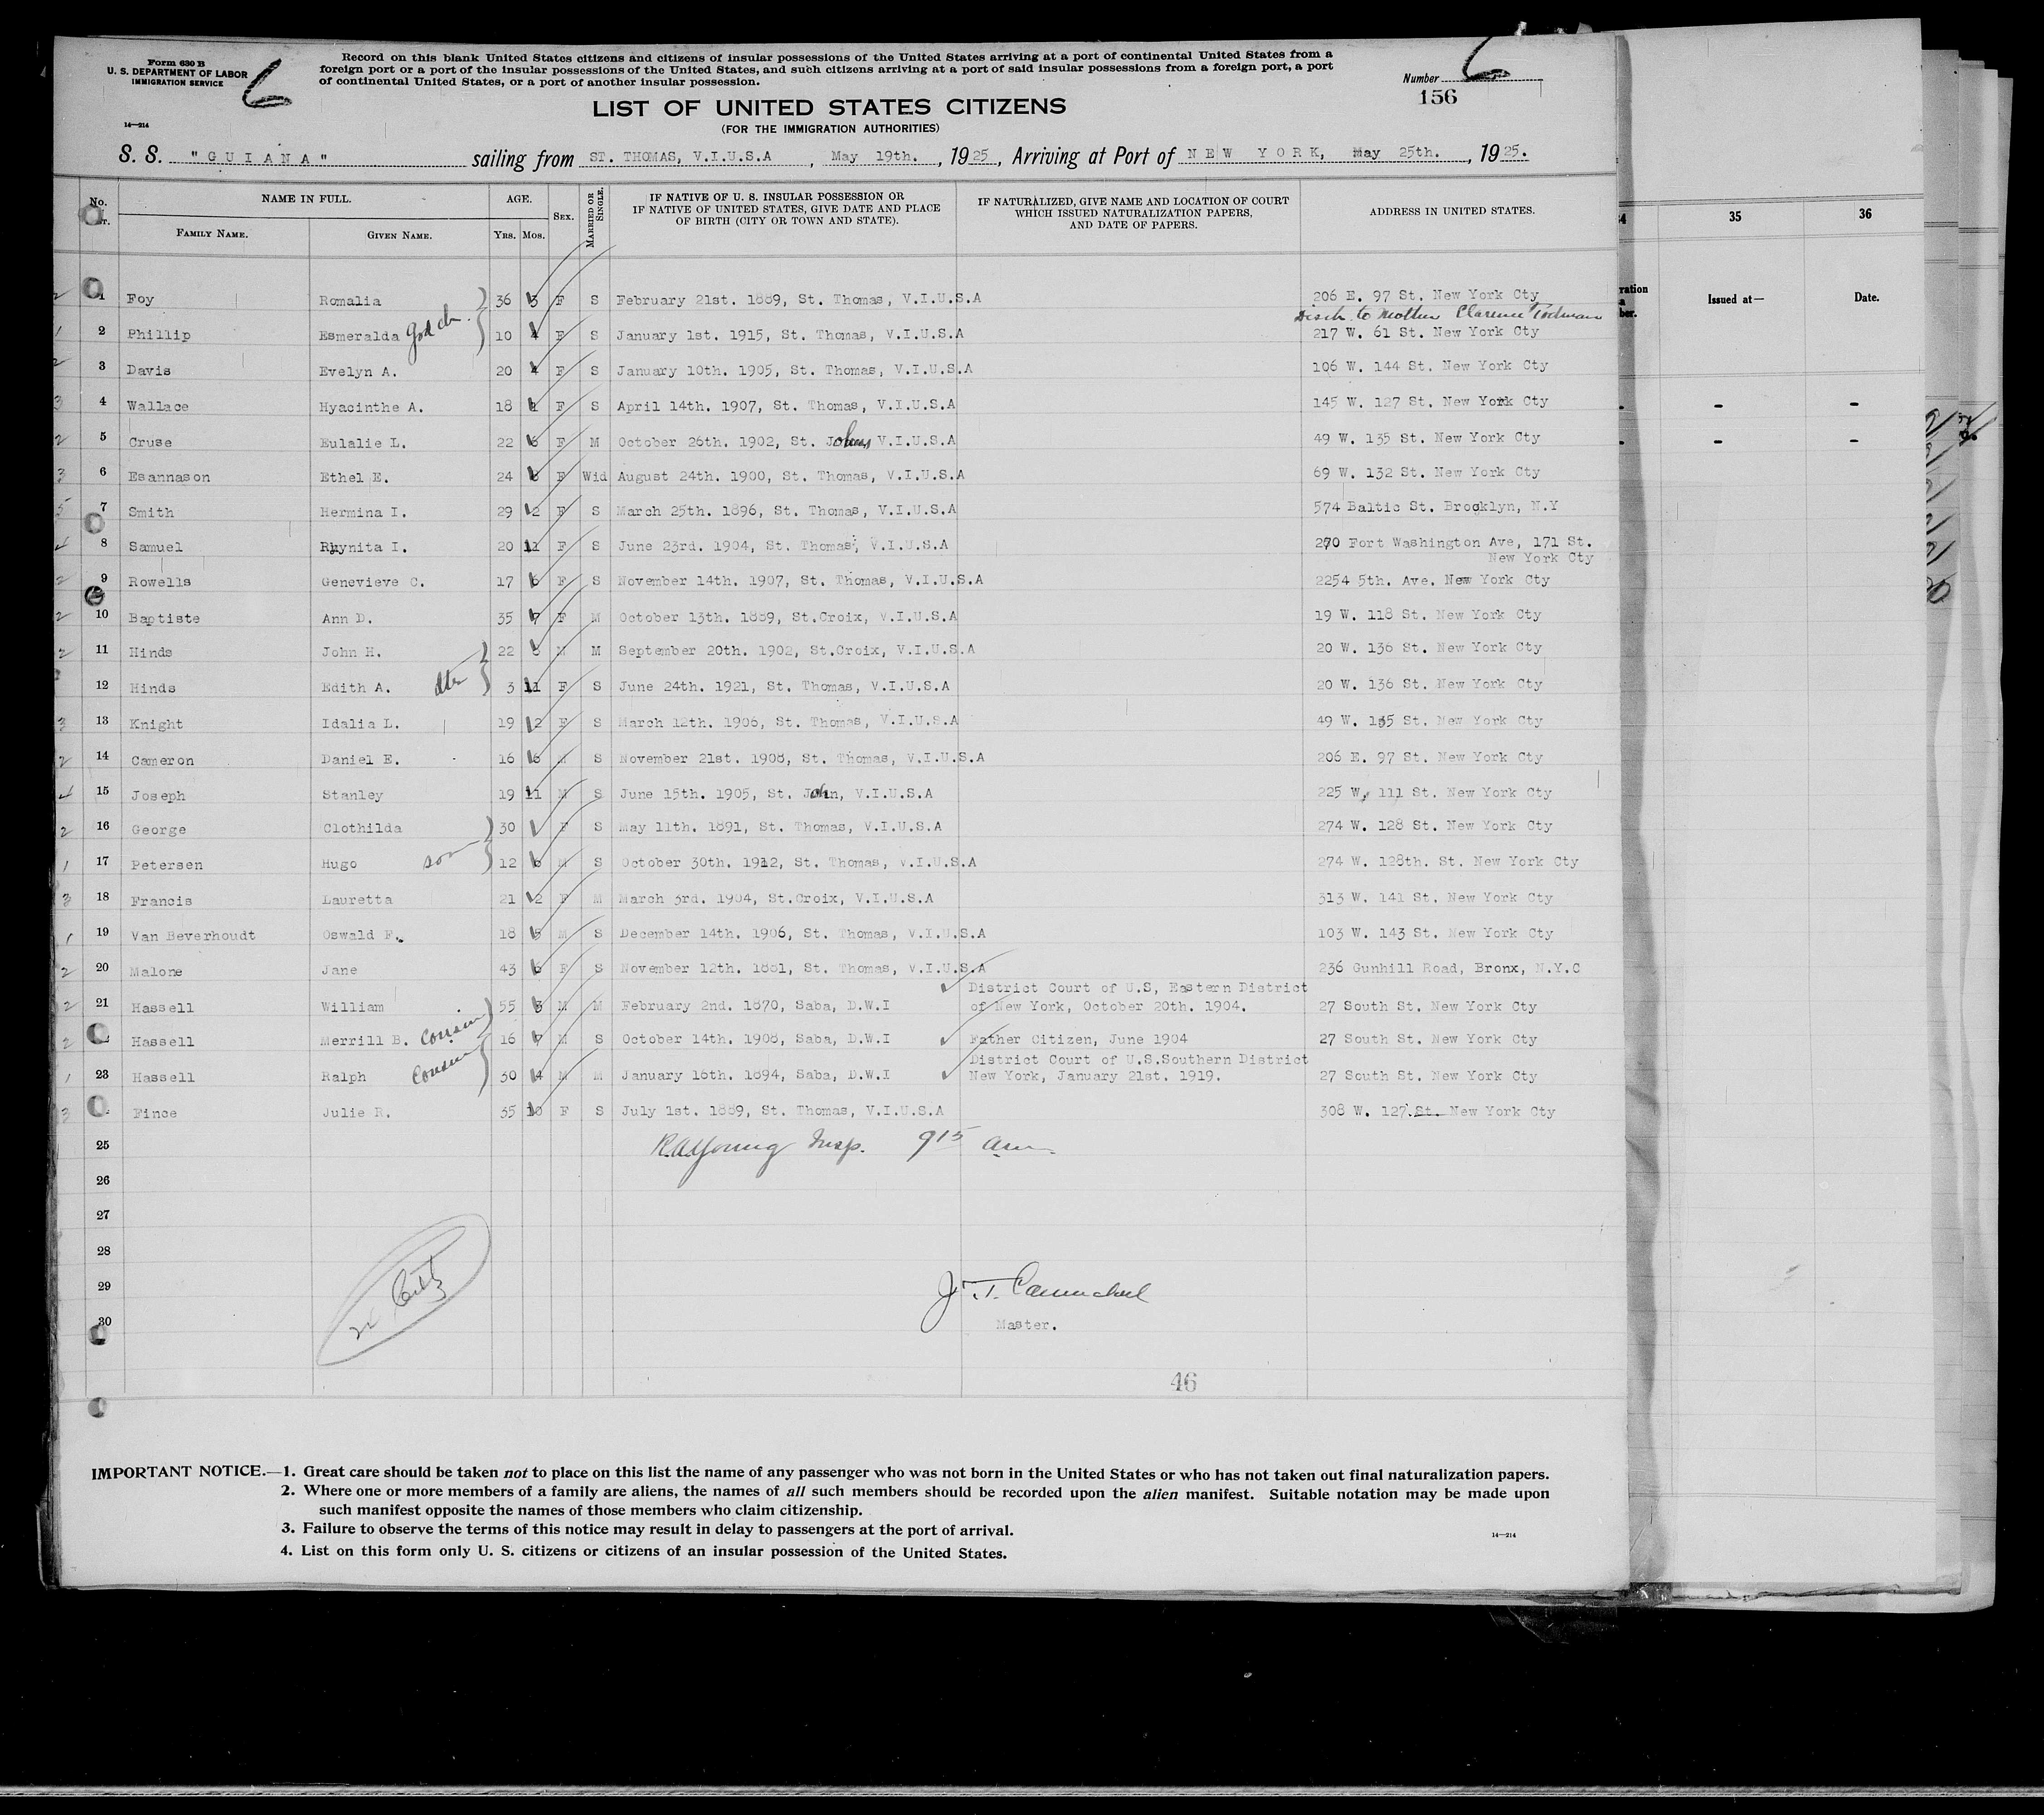 Form 630 B
U. S. DEPARTMENT OF LABOR
IMMIGRATION SERVICE
6
Record on this blank United States citizens and citizens of insular possessions of the United States arriving at a port of continental United States from a
foreign port or a port of the insular possessions of the United States, and such citizens arriving at a port of said insular possessions from a foreign port, a port
of continental United States, or a port of another insular possession.
Number 6
156
LIST OF UNITED STATES CITIZENS
(FOR THE IMMIGRATION AUTHORITIES)
14—214
S. S. "GUIANA" sailing from ST. THOMAS, V.I.U.S.A , May 19th. , 1925 , Arriving at Port of NEW YORK, May 25th. , 1925.
No. NAME IN FULL. AGE. SEX. MARRIED OR SINGLE. IF NATIVE OF U. S. INSULAR POSSESSION OR IF NATIVE OF UNITED STATES, GIVE DATE AND PLACE OF BIRTH (CITY OR TOWN AND STATE). IF NATURALIZED, GIVE NAME AND LOCATION OF COURT WHICH ISSUED NATURALIZATION PAPERS, AND DATE OF PAPERS. ADDRESS IN UNITED STATES.
FAMILY NAME. GIVEN NAME. YRS. MOS.
35 36
Issued at— Date.
1 Foy Romalia 36 3 F S February 21st. 1889, St. Thomas, V.I.U.S.A 206 E. 97 St. New York Cty
Disch. to Mother Clarence Todman
2 Phillip Esmeralda God ch. 10 4 F S January 1st. 1915, St. Thomas, V.I.U.S.A 217 W. 61 St. New York Cty
3 Davis Evelyn A. 20 4 F S January 10th. 1905, St. Thomas, V.I.U.S.A 106 W. 144 St. New York Cty
4 Wallace Hyacinthe A. 18 1 F S April 14th. 1907, St. Thomas, V.I.U.S.A 145 W. 127 St. New York Cty
5 Cruse Eulalie L. 22 6 F M October 26th. 1902, St. Johns V.I.U.S.A 49 W. 135 St. New York Cty
6 Esannason Ethel E. 24 8 F Wid August 24th. 1900, St. Thomas, V.I.U.S.A 69 W. 132 St. New York Cty
7 Smith Hermina I. 29 2 F S March 25th. 1896, St. Thomas, V.I.U.S.A 574 Baltic St. Brooklyn, N.Y
8 Samuel Rhynita I. 20 11 F S June 23rd. 1904, St. Thomas, V.I.U.S.A 270 Fort Washington Ave, 171 St.
New York Cty
9 Rowells Genevieve C. 17 6 F S November 14th. 1907, St. Thomas, V.I.U.S.A 2254 5th. Ave. New York Cty
10 Baptiste Ann D. 35 7 F M October 13th. 1889, St.Croix, V.I.U.S.A 19 W. 118 St. New York Cty
11 Hinds John H. 22 8 M M September 20th. 1902, St.Croix, V.I.U.S.A 20 W. 136 St. New York Cty
12 Hinds Edith A. dtr 3 11 F S June 24th. 1921, St. Thomas, V.I.U.S.A 20 W. 136 St. New York Cty
13 Knight Idalia L. 19 2 F S March 12th. 1906, St. Thomas, V.I.U.S.A 49 W. 135 St. New York Cty
14 Cameron Daniel E. 16 6 M S November 21st. 1908, St. Thomas, V.I.U.S.A 206 E. 97 St. New York Cty
15 Joseph Stanley 19 11 M S June 15th. 1905, St. John, V.I.U.S.A 225 W. 111 St. New York Cty
16 George Clothilda 30 F S May 11th. 1891, St. Thomas, V.I.U.S.A 274 W. 128 St. New York Cty
17 Petersen Hugo son 12 6 M S October 30th. 1912, St. Thomas, V.I.U.S.A 274 W. 128th. St. New York Cty
18 Francis Lauretta 21 2 F M March 3rd. 1904, St.Croix, V.I.U.S.A 313 W. 141 St. New York Cty
19 Van Beverhoudt Oswald F. 18 5 M S December 14th. 1906, St. Thomas, V.I.U.S.A 103 W. 143 St. New York Cty
20 Malone Jane 43 6 F S November 12th. 1881, St. Thomas, V.I.U.S.A 236 Gunhill Road, Bronx, N.Y.C
District Court of U.S, Eastern District
21 Hassell William 55 3 M M February 2nd. 1870, Saba, D.W.I of New York, October 20th. 1904. 27 South St. New York Cty
Hassell Merrill B. cousin 16 7 M S October 14th. 1908, Saba, D.W.I Father Citizen, June 1904 27 South St. New York Cty
District Court of U.S.Southern District
23 Hassell Ralph cousin 30 4 M M January 16th. 1894, Saba, D.W.I New York, January 21st. 1919. 27 South St. New York Cty
Fince Julie R. 35 10 F S July 1st. 1889, St. Thomas, V.I.U.S.A 308 W. 127 St. New York Cty
25 R.A.Young Insp. 9 15 am
26
27
28
29
30
J. T. Carmichael
Master.
46
IMPORTANT NOTICE.—1. Great care should be taken not to place on this list the name of any passenger who was not born in the United States or who has not taken out final naturalization papers.
2. Where one or more members of a family are aliens, the names of all such members should be recorded upon the alien manifest. Suitable notation may be made upon
such manifest opposite the names of those members who claim citizenship.
3. Failure to observe the terms of this notice may result in delay to passengers at the port of arrival.
14—214
4. List on this form only U. S. citizens or citizens of an insular possession of the United States.